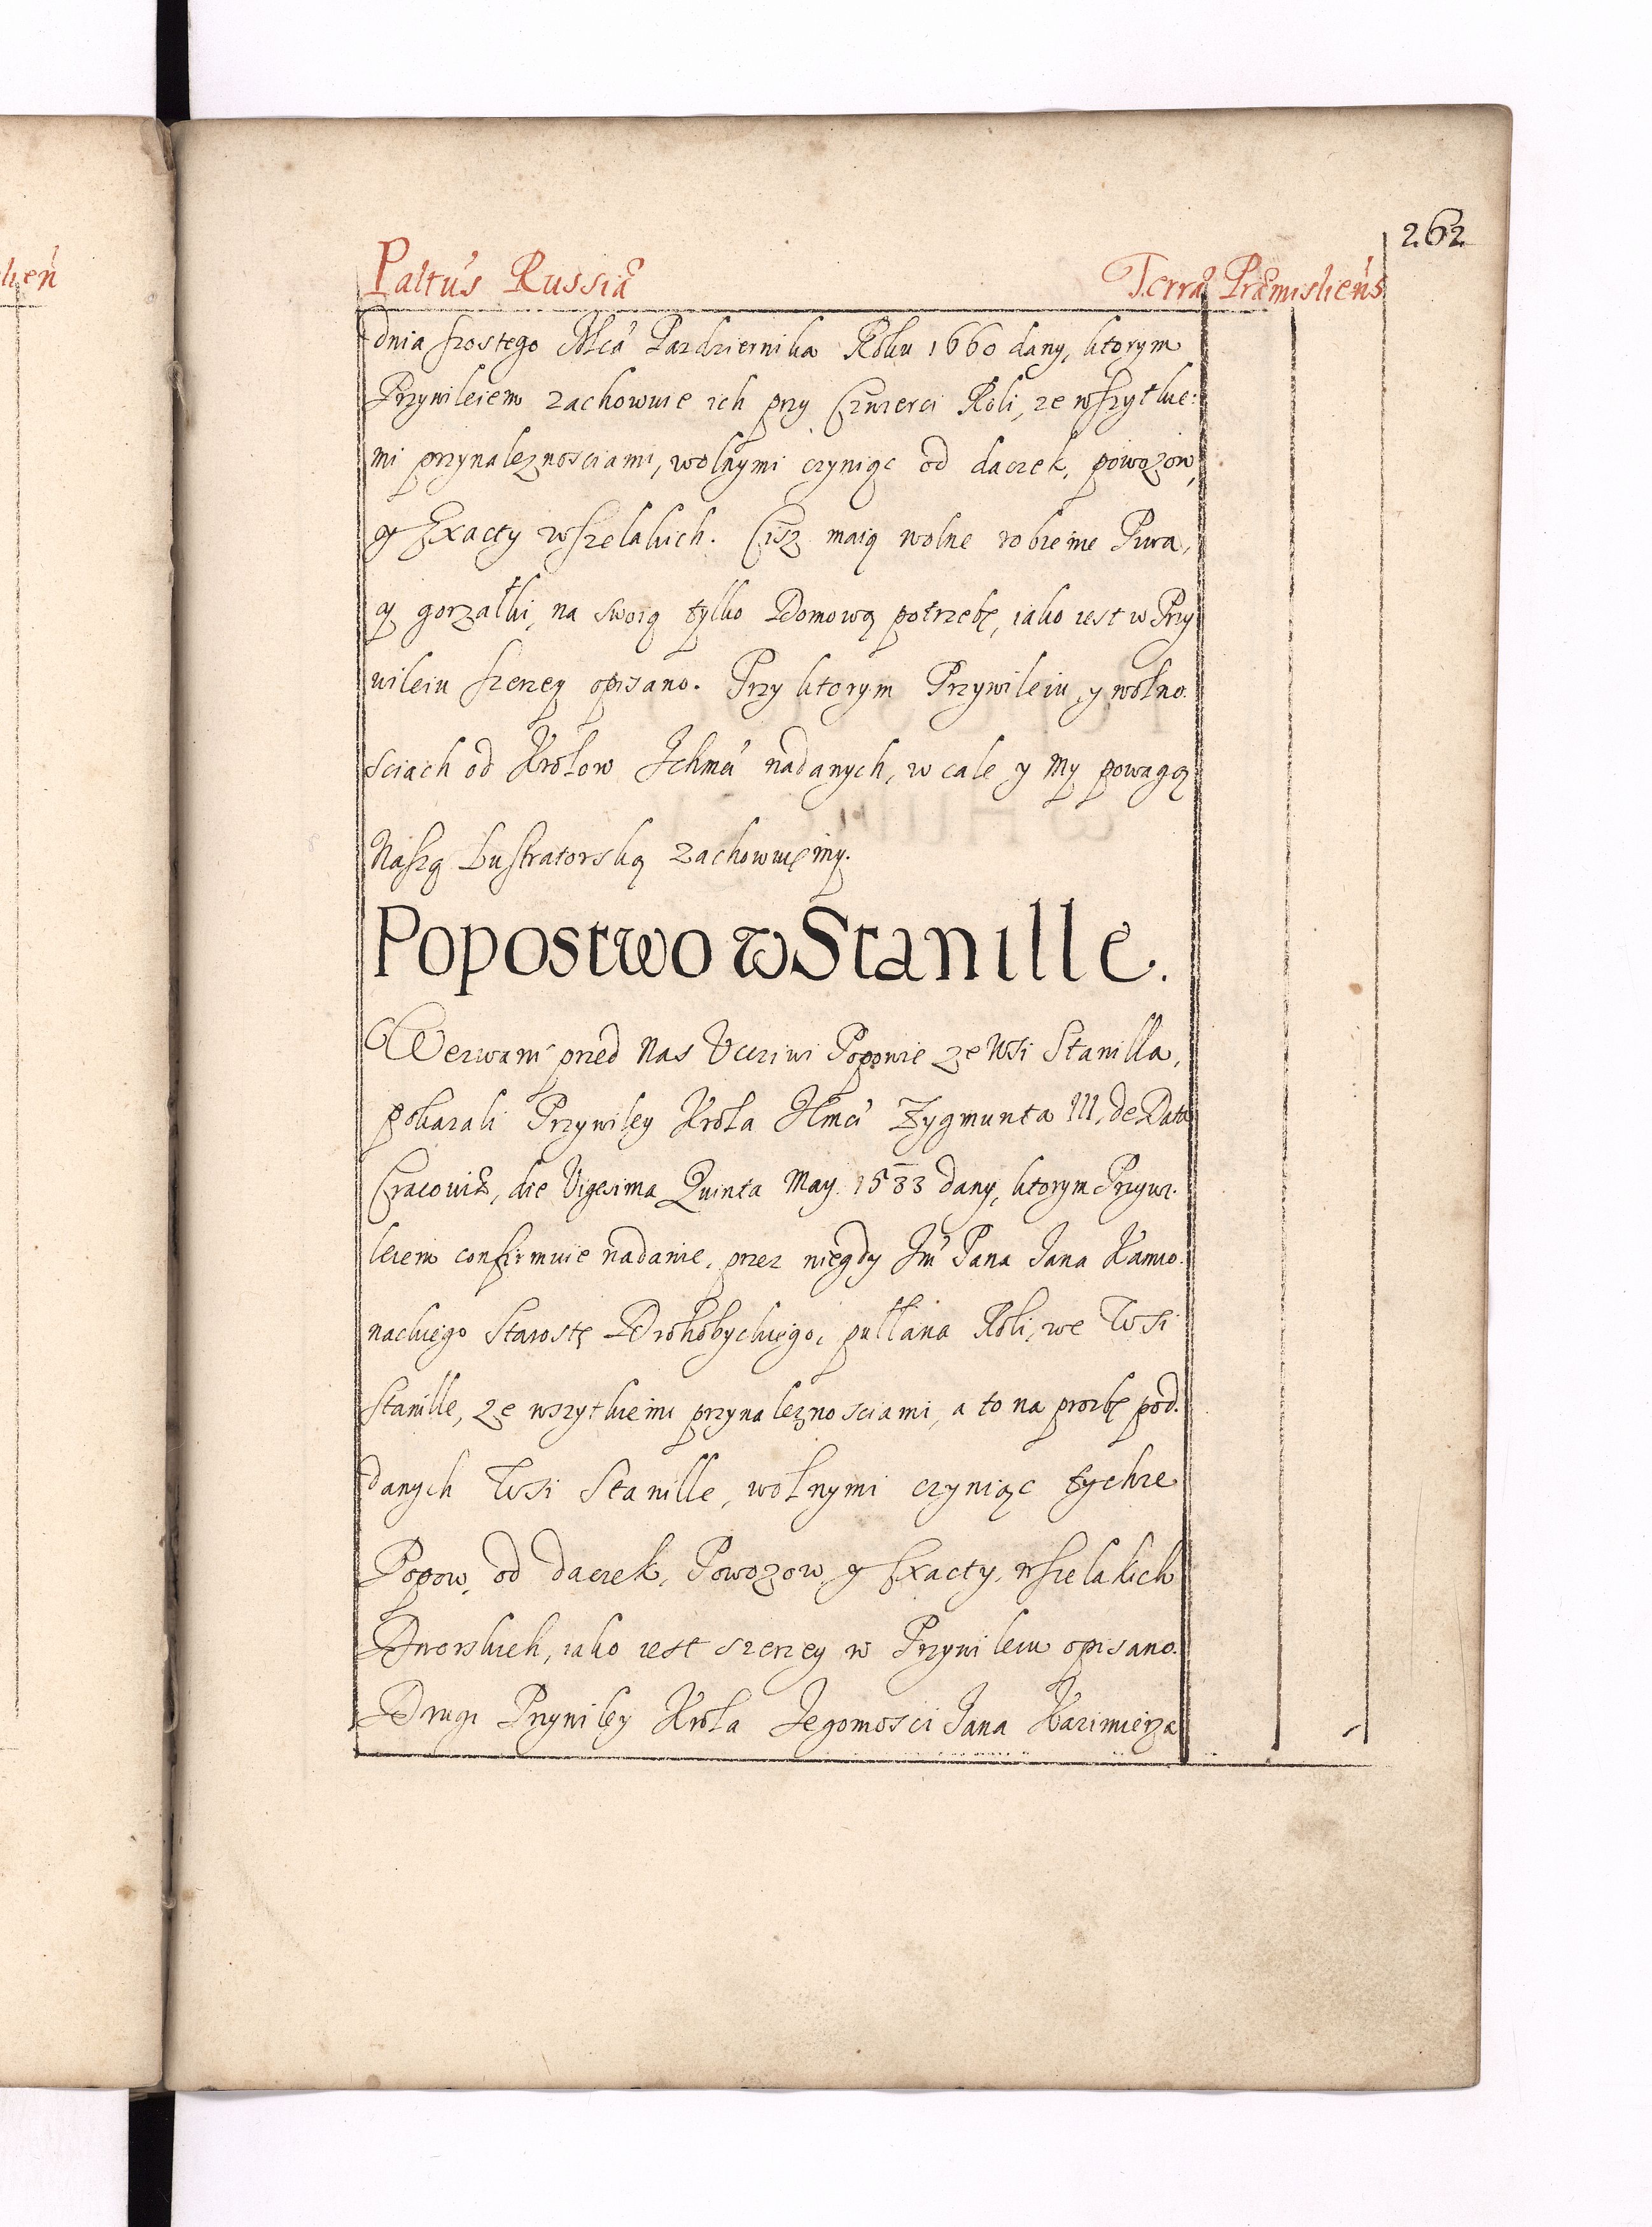 262
Paltus Russiæ Terræ Præmisliens
dnia szostego Mca Pazdziernika Roku 1660 dany, ktorym
Przywileiem zachowuie ich przy Czwierci Roli, ze wszytkie:
mi przynaleznosciami, wolnymi czyniąc od daczek, powozow,
y Exacty wszelakich. Ciż maią wolne robienie Piwa,
y gorzałki, na swoią tylko Domową potrzebę, iako iest w Przy
wileiu szerzey opisano. Przy ktorym Przywileiu, y wolno.
sciach od Krolow Ichmci nadanych, w cale y my powagą
Naszą Lustratorską zachowuięmy.
Popostwo w Stanille.
Wezwani przed nas Uczciwi Popowie ze Wsi Stanilla,
pokazali Przywiley Krola JKmci Zygmunta III, de Data
Cracoviæ, die Vigesima Quinta May 1583 dany, ktorym Przywi.
leiem confirmuie nadanie, przez niegdy Jm Pana Jana Kamio.
nackiego Starostę Drohobyckiego, pułłana Roli, we Wsi
Stanille, ze wszytkiemi przynaleznosciami, a to na prozbę pod.
danych Wsi Stanille, wolnymi czyniąc tychze
Popow, od daczek, Powozow, y Exacty, wszelakich
Dworskich, iako iest szerzey w Przywileiu opisano.
Drugi Przywiley Krola Jegomosci Jana Kazimierza